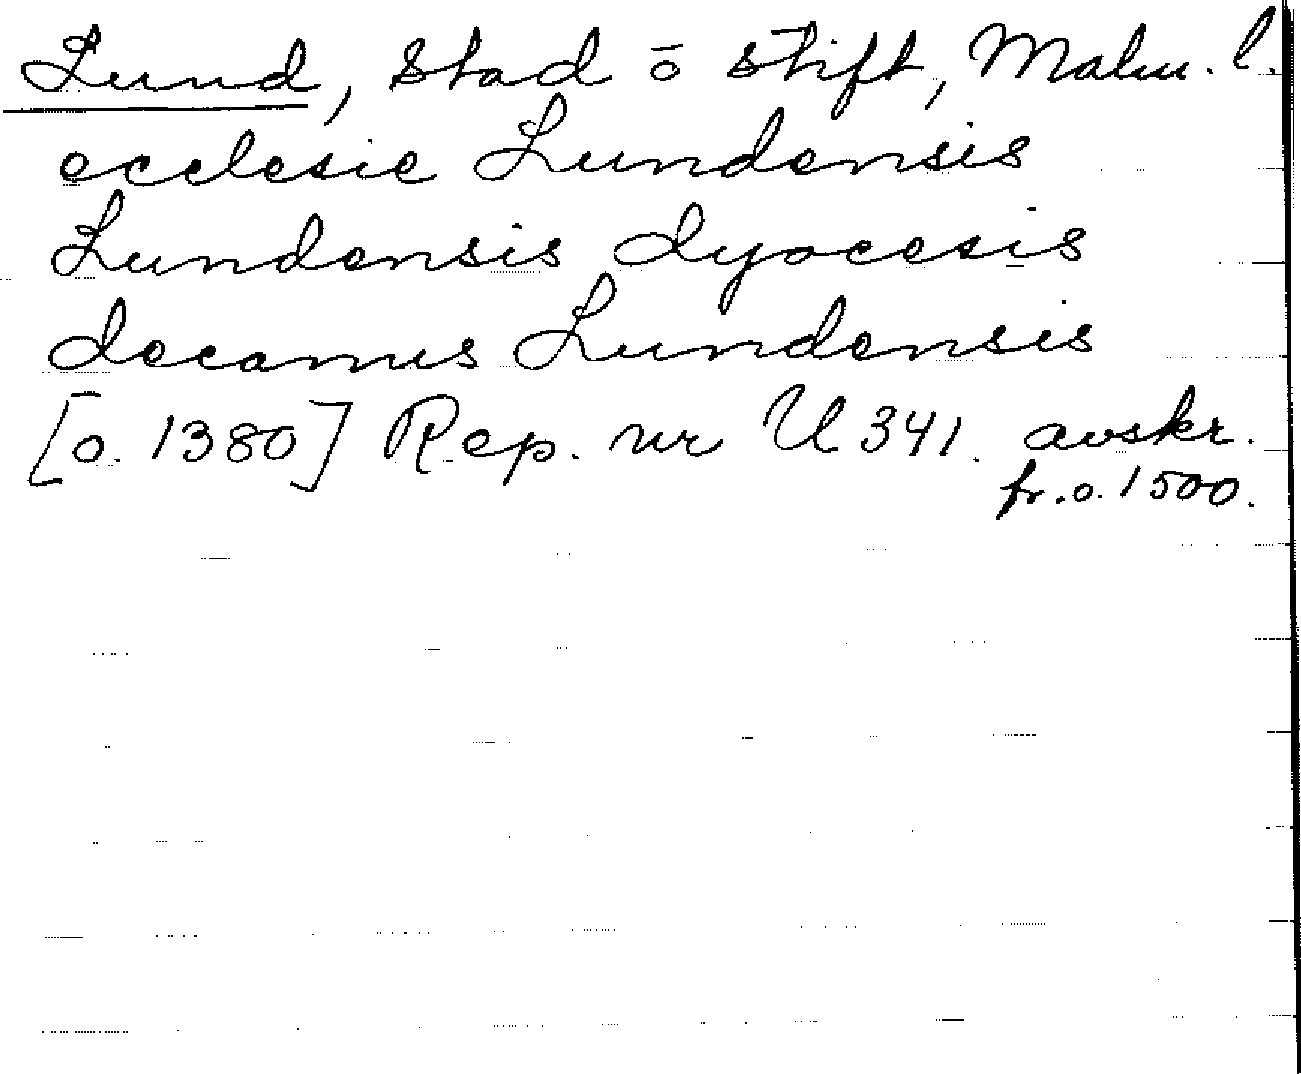 Lund, stad ō stift, Malm. l.
ecclesie Lundensis
Lundensis dyocesis
decanus Lundensis
[o. 1380] Rep. nr U 341. avskr.
fr. o. 1500.